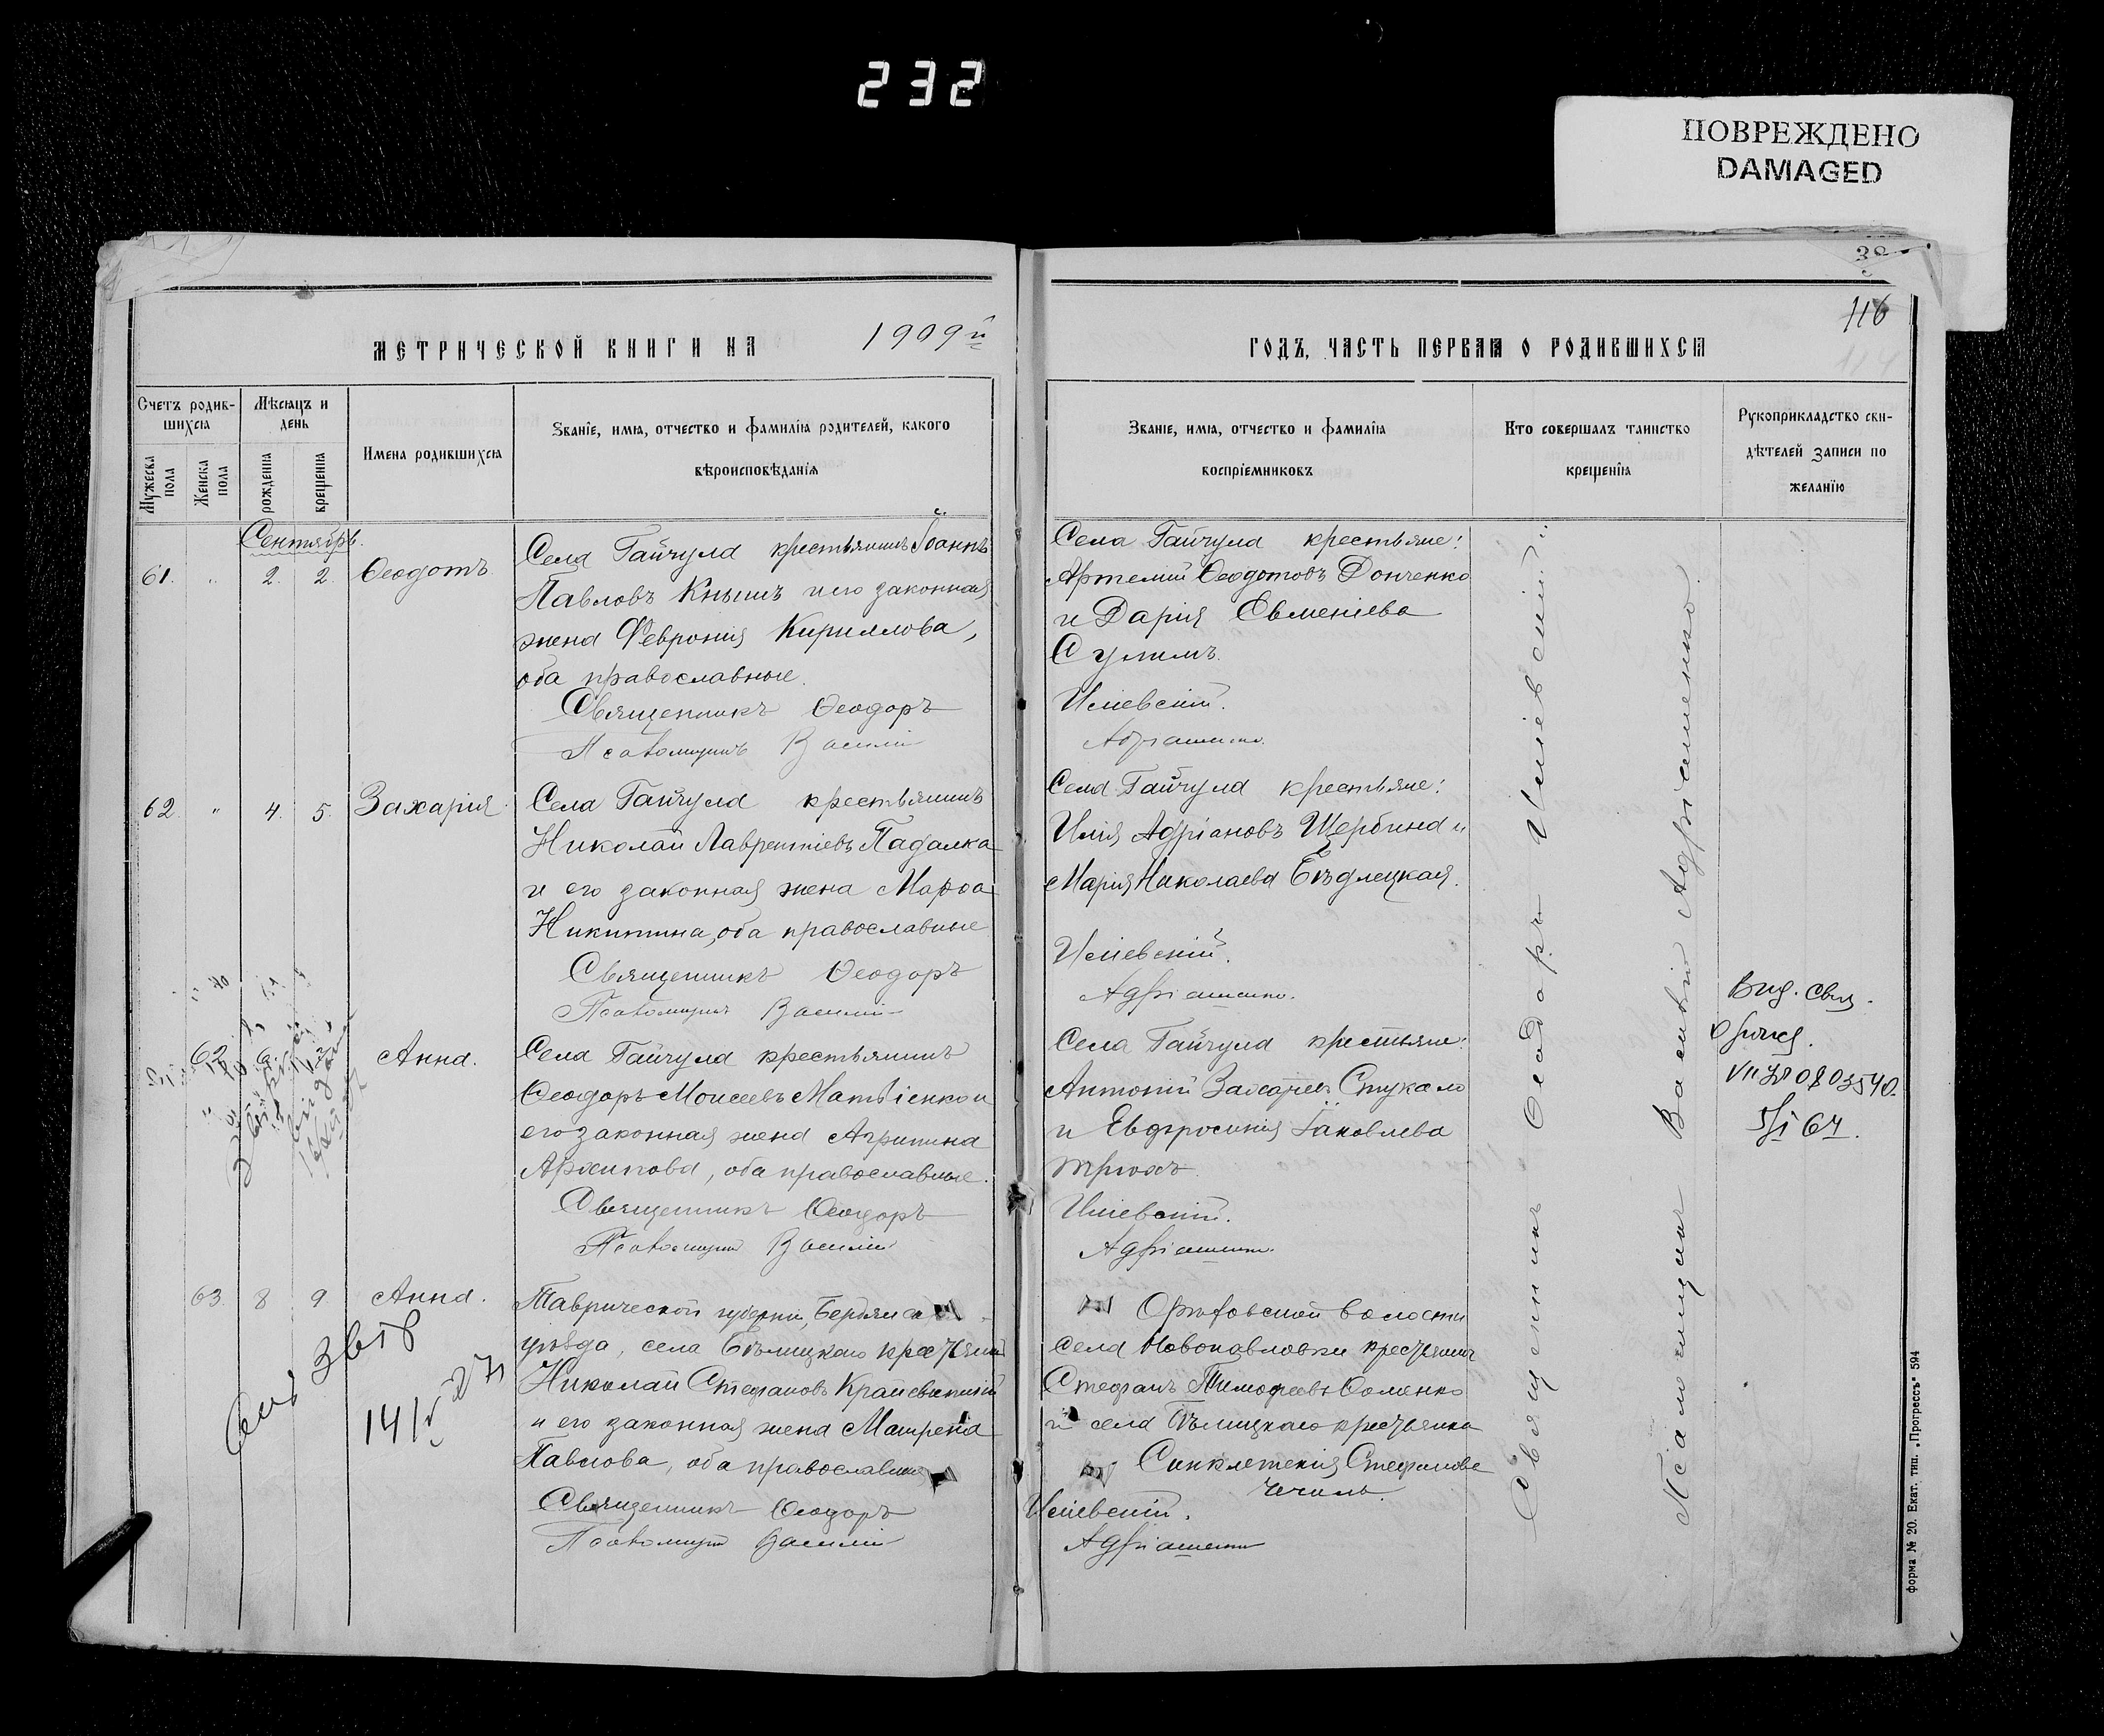 232
ПОВРЕЖДЕНО
DAMAGED
38
116
114
МЕТРИЧЕСКОЙ КНИГИ НА 1909й
ГОДЪ, ЧАСТЬ ПЕРВАЯ О РОДИВШИХСЯ
Счетъ родив-
шихся
Мужеска пола
Женска пола
Мѣсяцъ и
день
рожденія
крещенія
Имена родившихся
Званіе, имя, отчество и фамилія родителей, какого
вѣроисповѣданія
Званіе, имя, отчество и фамилія
воспріемниковъ
Кто совершалъ таинство
крещенія
Рукоприкладство сви-
дѣтелей записи по
желанію
Сентябрь.
61. „ 2. 2. Ѳеодотъ
Села Гайчула крестьянинъ Іоаннъ
Павловъ Кнышъ и его законная
жена Феврония Кириллова,
оба православные.
Священникъ Ѳеодоръ
Псаломщикъ Василій
Села Гайчула крестьяне:
Артемій Ѳеодотовъ Донченко
и Дарія Евменіева
Сулимъ.
Илиевскій.
Адріашенко.
62. „ 4. 5. Захарія
Села Гайчула крестьянинъ
Николай Лаврентіевъ Падалка
и его законная жена Марѳа
Никитина, оба православные
Священникъ Ѳеодоръ
Псаломщикъ Василій
Села Гайчула крестьяне:
Илія Адріановъ Щербина и
Марія Николаева Бѣдлецкая.
Илиевскій.
Адріашенко.
62 6. Анна.
Села Гайчула крестьянинъ
Ѳеодоръ Моисеевъ Матвіенко и
его законная жена Агрипина
Архипова, оба православные.
Священникъ Ѳеодоръ
Псаломщикъ Василій
Села Гайчула крестьяне:
Антоній Захаріевъ Стукало
и Евфросинія Іаковлева
Трюхъ.
Илиевскій.
Адріашенко.
Вид. свид.
0803540.
64.
63. 8 9. Анна.
14
27
Таврической губерніи, Бердянска
уѣзда, села Бѣлицкаго крестьянинъ
Николай Стефановъ
и его законная жена Матрена
Павлова, оба православные
Священникъ Ѳеодоръ
Псаломщикъ Василій
волости
села Новопавловки крестьянинъ
Стефанъ Тимофеевъ Фоменко
и села Бѣлицкаго крестьянка
Синклетикія Стефанова
Илиевскій.
Адріашенко
Священникъ Ѳеодоръ Илиевскій.
Псаломщикъ Василій Адріашенко.
форма № 20. Екат. тип. „Прогрессъ“ 594